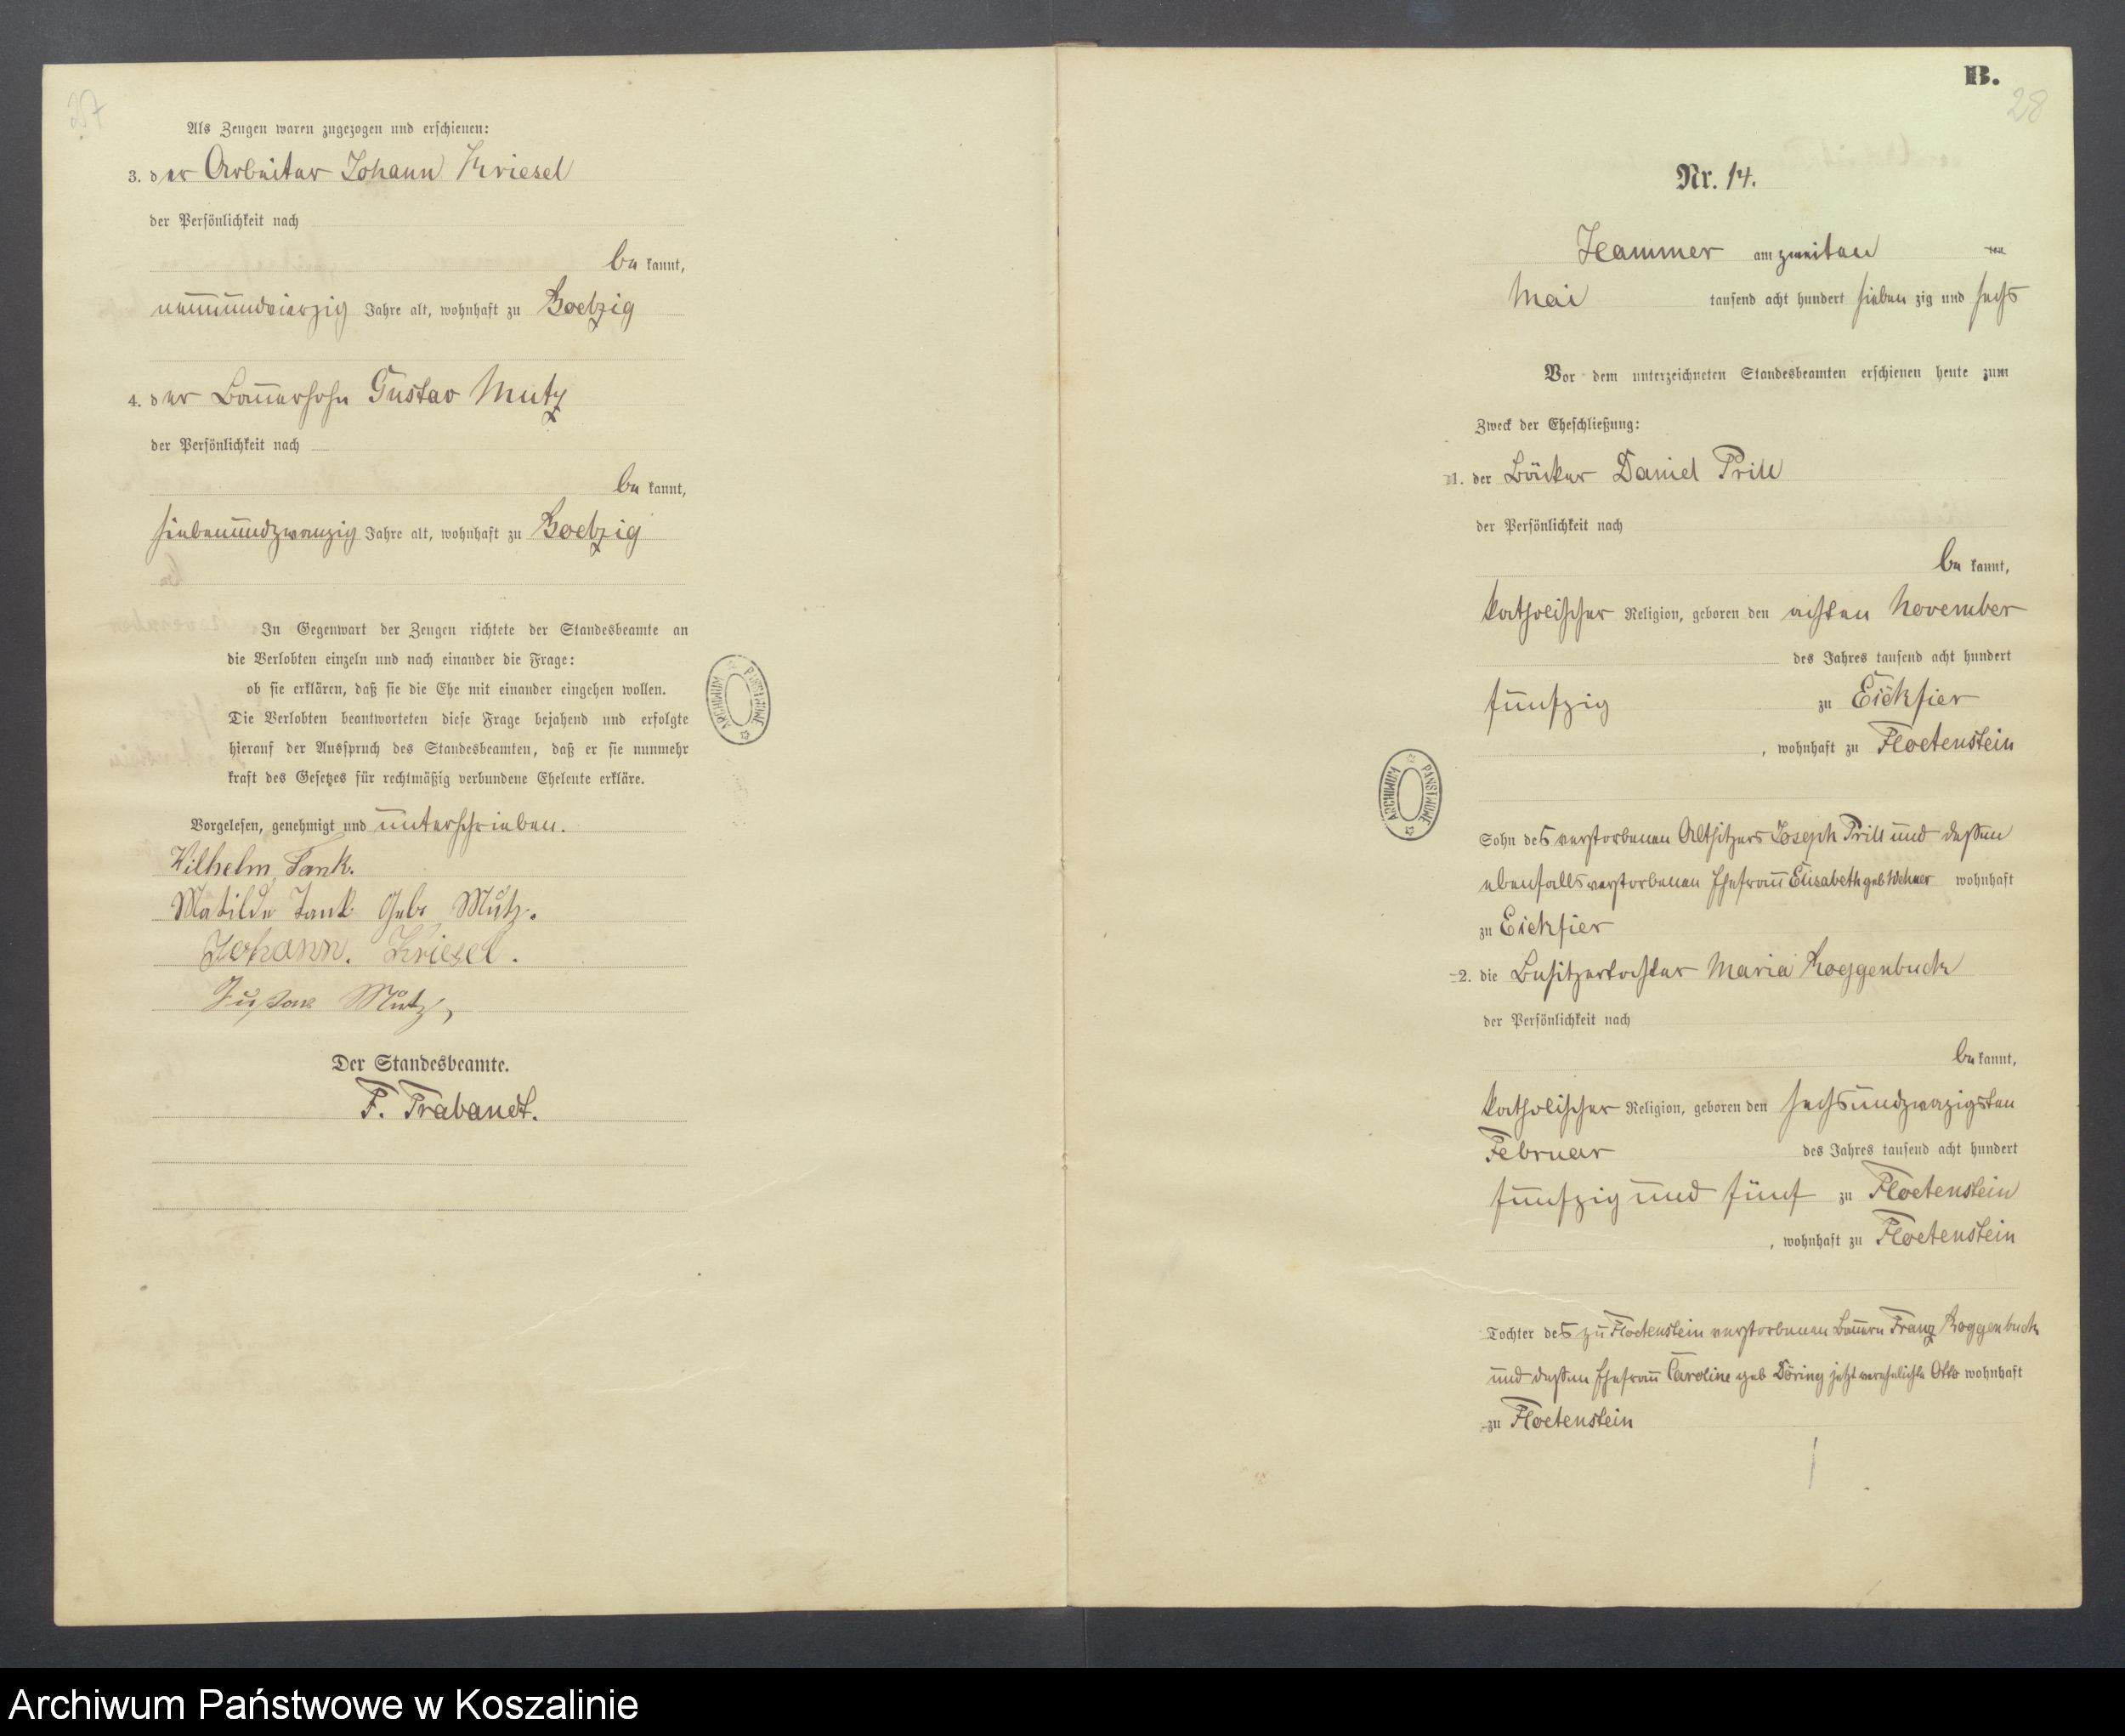 27
Als Zeugen waren zugezogen und erschienen:
3. der Arbeiter Johann Kriesel
der Persönlichkeit nach
be kannt,
neunundvierzig Jahre alt, wohnhaft zu Boelzig
4. der Bauersohn Gustav Mutz
der Persönlichkeit nach
be kannt,
siebenundzwanzig Jahre alt, wohnhaft zu Boelzig
In Gegenwart der Zeugen richtete der Standesbeamte an
die Verlobten einzeln und nach einander die Frage:
ob sie erklären, daß sie die Ehe mit einander eingehen wollen.
Die Verlobten beantworteten diese Frage bejahend und erfolgte
hierauf der Ausspruch des Standesbeamten, daß er sie nunmehr
kraft des Gesetzes für rechtmäßig verbundene Eheleute erkläre.
Vorgelesen, genehmigt und unterschrieben.
Wilhelm Tank.
Matilde Tank Geb Mutz.
Johann. Kriesel.
Gustav Mutz,
Der Standesbeamte.
F. Trabandt.
ARCHIWUM PAŃSTWOWE
B.
28
Nr. 14.
Hammer am zweiten ten
Mai tausend acht hundert sieben zig und sechs
Vor dem unterzeichneten Standesbeamten erschienen heute zum
Zweck der Eheschließung:
1. der Bäcker Daniel Prill
der Persönlichkeit nach
be kannt,
katholischer Religion, geboren den achten November
des Jahres tausend acht hundert
fünfzig zu Eickfier
, wohnhaft zu Floetenstein
ARCHIWUM PAŃSTWOWE
Sohn des verstorbenen Altsitzers Joseph Prill und dessen
ebenfalls verstorbenen Ehefrau Elisabeth geb Wehner wohnhaft
zu Eickfier
2. die Besitzertochter Maria Roggenbuck
der Persönlichkeit nach
be kannt,
katholischer Religion, geboren den sechsundzwazigsten
Februar des Jahres tausend acht hundert
fünfzig und fünf zu Floetenstein
, wohnhaft zu Floetenstein
Tochter des zu Floetenstein verstorbenen Bauern Franz Roggenbuck
und dessen Ehefrau Caroline geb Döring jetzt verehelichte Otto wohnhaft
zu Floetenstein
Archiwum Państwowe w Koszalinie